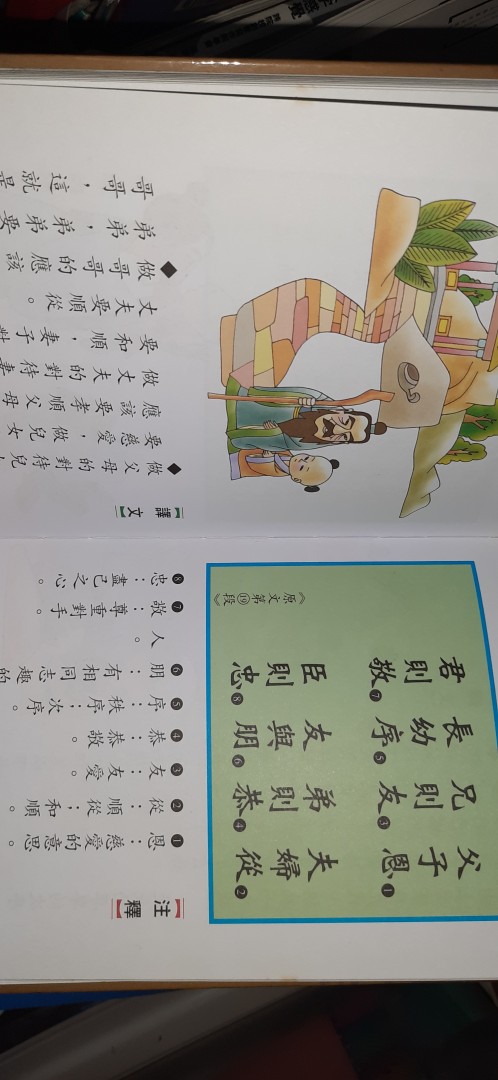 《原文第⑲段》
父子恩❶夫婦從❷
兄則友❸弟則恭❹
長幼序❺友與朋❻
君則敬❼臣則忠❽
【注釋】
❶恩:慈愛的意思。
❷從:順從;和順。
❸友:友愛。
❹恭:恭敬。
❺序:秩序;次序。
❻朋:有相同志趣的
人。
❼敬:尊重對手。
❽忠:盡己之心。
【譯文】
◆做父母的對待兒
要慈愛,做兒女
應該要孝順父母
做丈夫的對待妻
要和順,妻子對
丈夫要順從。
◆做哥哥的應該
弟弟,弟弟要
哥哥,這就是